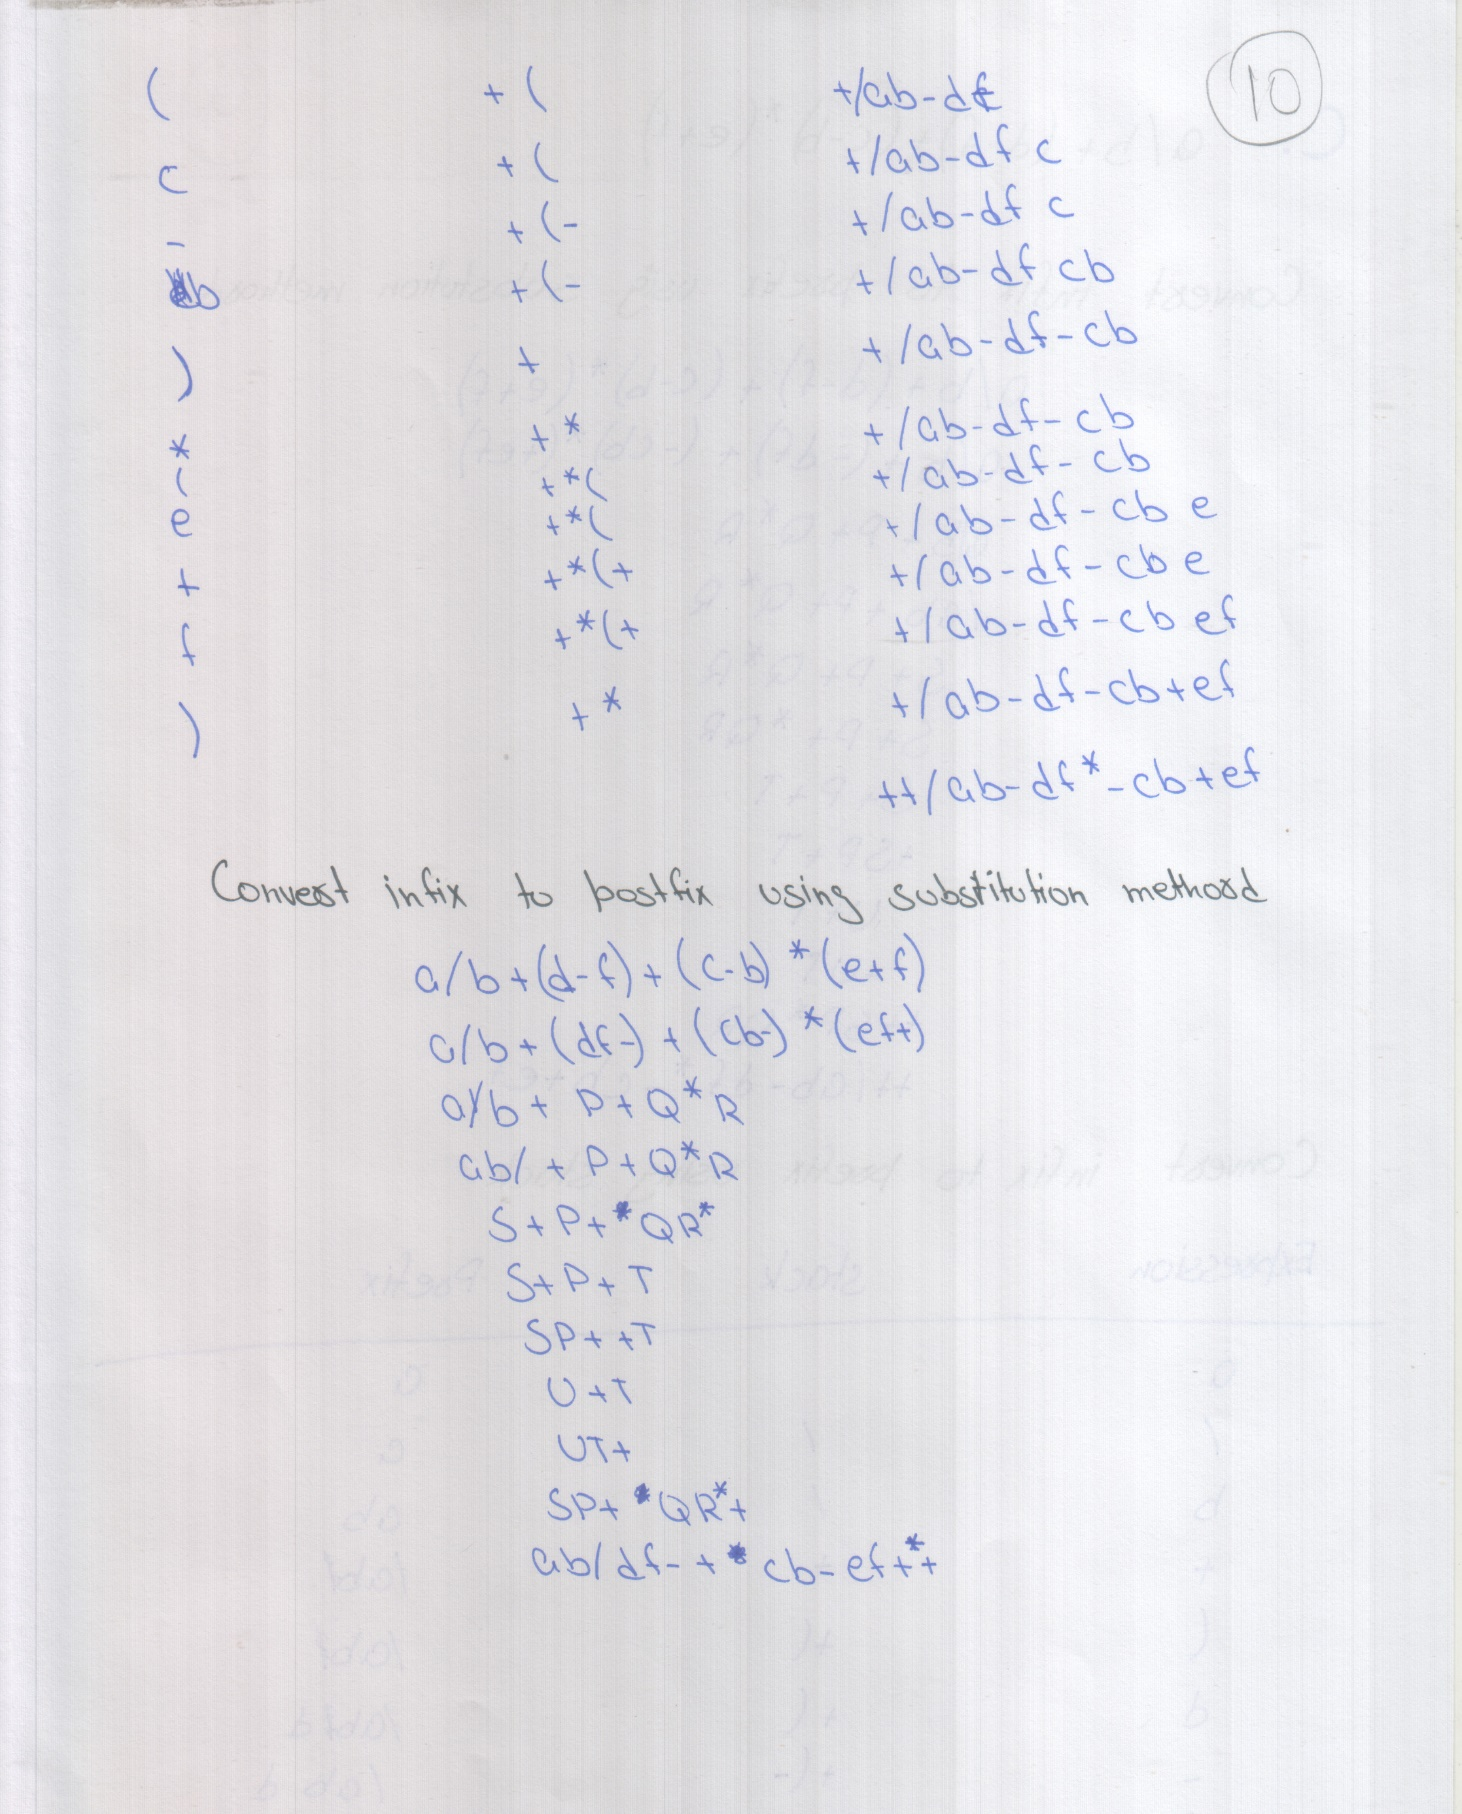 10
( + ( +/ab-df
c + ( +/ab-df c
- + (- +/ab-df c
b + (- +/ab-df cb
) + +/ab-df-cb
* + * +/ab-df-cb
( + * ( +/ab-df-cb
e + * ( +/ab-df-cb e
+ + * ( + +/ab-df-cb e
f + * ( + +/ab-df-cb ef
) + * +/ab-df-cb+ef
++/ab-df*-cb+ef
Convert infix to postfix using substitution method
a/b+(d-f)+(c-b)*(e+f)
a/b+(df-)+(cb-)*(ef+)
a/b+ P+Q*R
ab/ + P+Q*R
S+P+QR*
S+P+T
SP++T
U+T
UT+
SP+ QR*+
ab/df-+ cb-ef+*+